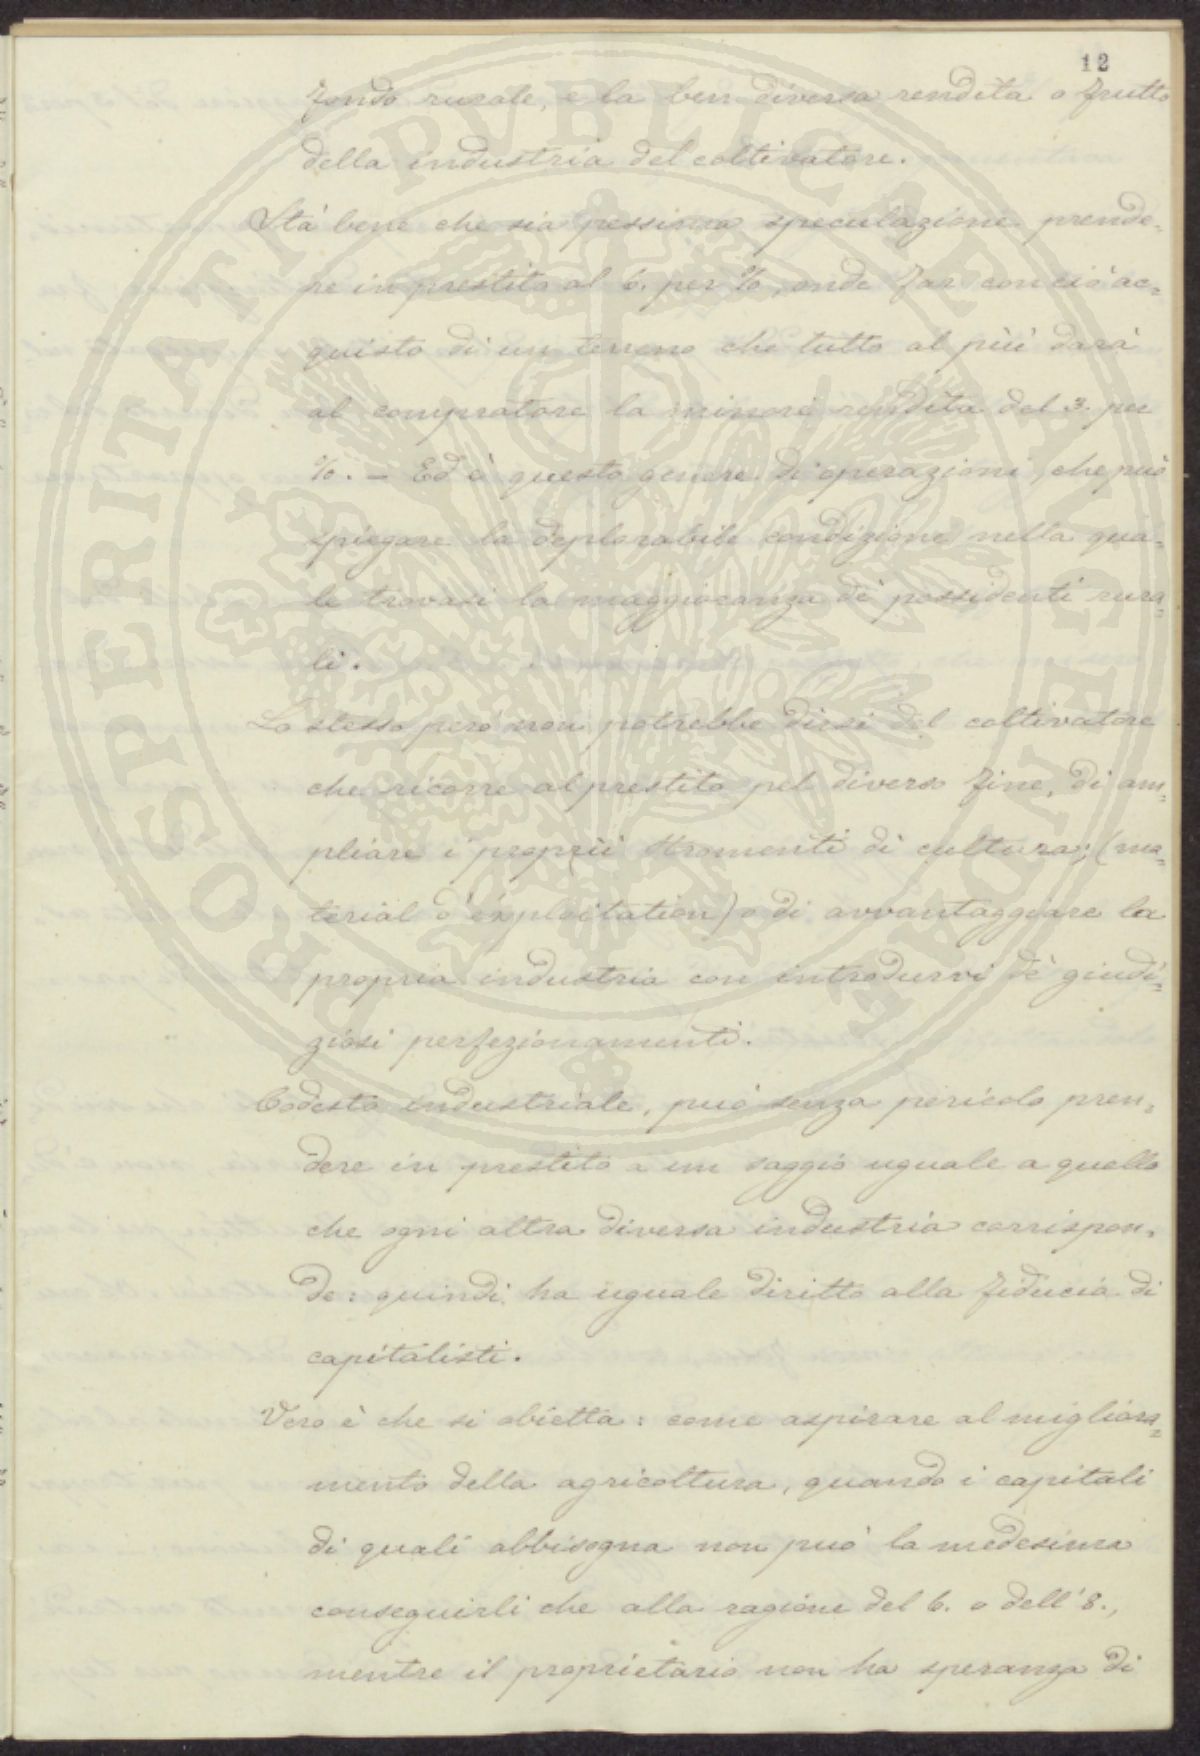 12
fondo rurale, e la ben diversa rendita o frutto
della industria del coltivatore.
Stà bene che sia pessima speculazione prende-
re in prestito al 6. per %, onde far con ciò ac=
quisto di un terreno che tutto al più darà
al compratore la minore rendita del 3. per
%. — Ed è questo genere di operazioni, che può
spiegare la deplorabile condizione nella qua=
le trovasi la maggioranza de' possidenti rura=
li.
Lo stesso però non potrebbe dirsi del coltivatore
che ricorre al prestito pel diverso fine, di am=
pliare i proprii stromenti di cultura; (ma=
terial d'exploitation) o di avvantaggiare la
propria industria con introdurvi de' giudi=
ziosi perfezionamenti.
Codesto industriale, può senza pericolo pren=
dere in prestito a un saggio uguale a quello
che ogni altra diversa industria corrispon=
de: quindi ha uguale diritto alla fiducia di
capitalisti.
Vero è che si obietta: come aspirare al migliora=
mento della agricoltura, quando i capitali
di quali abbisogna non può la medesima
conseguirli che alla ragione del 6. o dell'8.,
mentre il proprietario non ha speranza di
PROSPERITATI PVBLICAE VINDICATAE